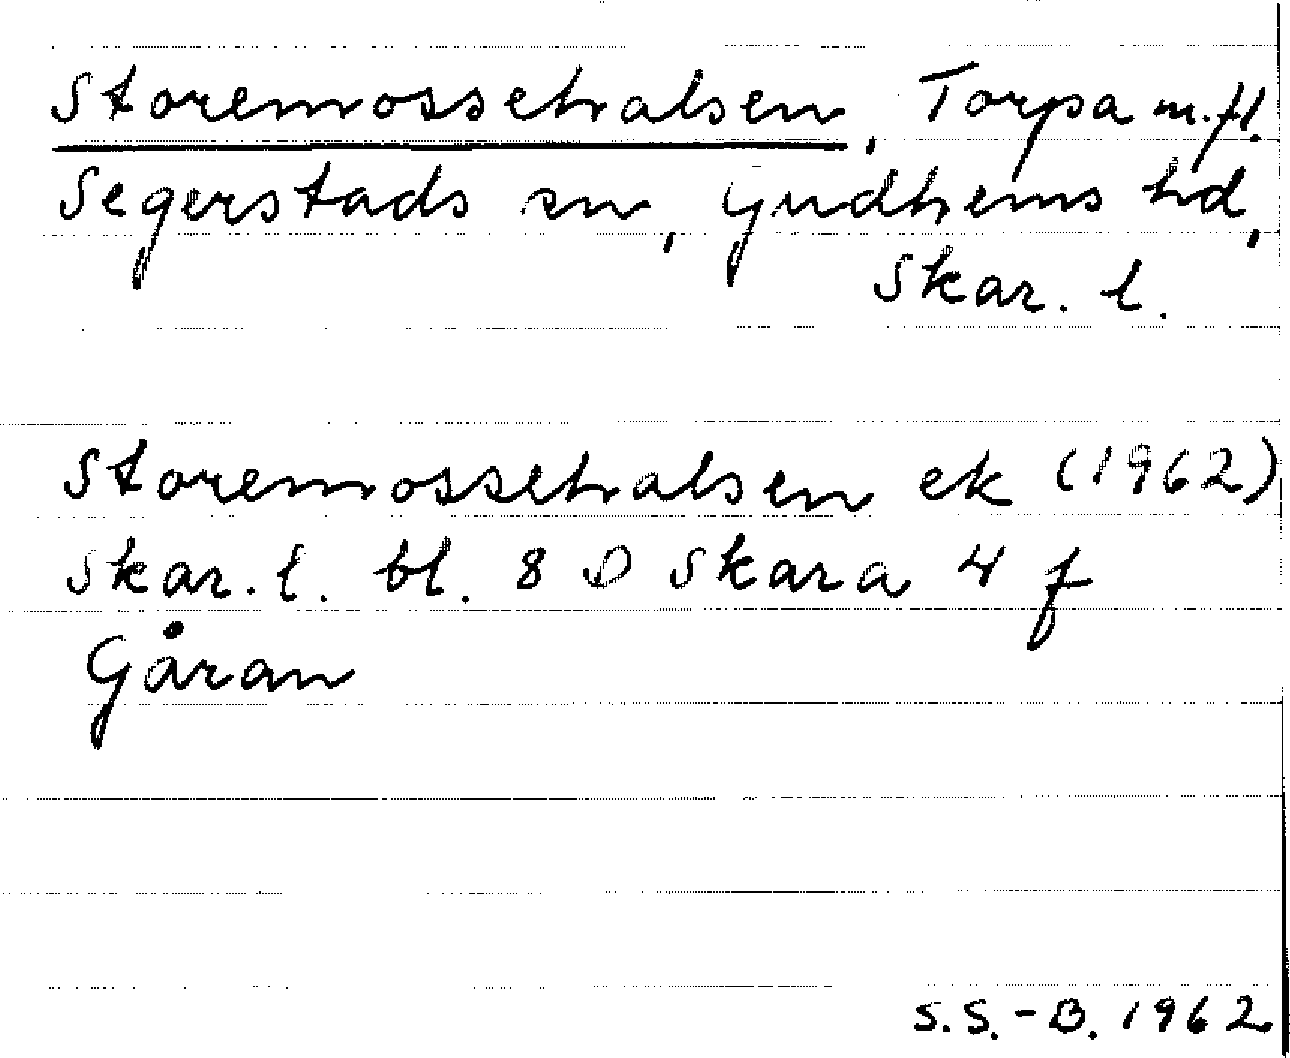 Storemossehalsen, Torpa m.fl.
Segerstads sn, Gudhems hd,
Skar. l.
Storemossehalsen ek (1962)
Skar. l. bl. 8 D Skara 4 f
Gåran
S.S.-B. 1962